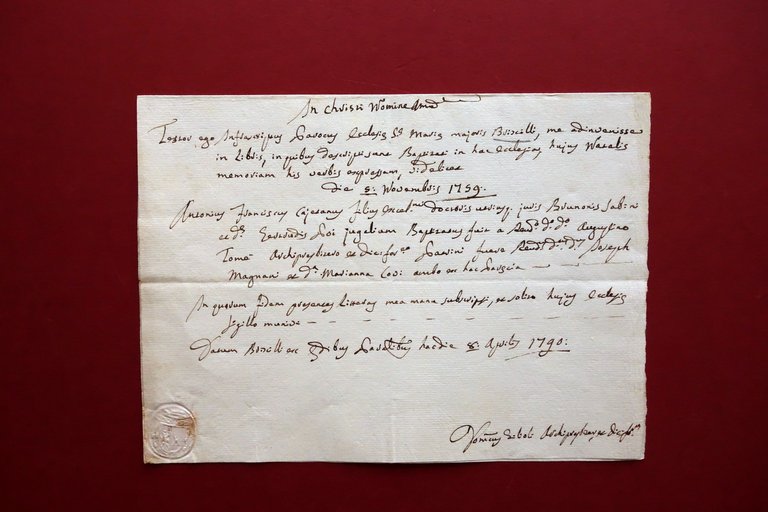 In Christi Nomine Amen
Testor ego Infrascriptus Parocus Ecclesiæ Sæ Mariæ majoris Brixelli, me adinvenisse
in Libris, in quibus descripti sunt Baptizati in hac Ecclesia, hujus Natalis
memoriam his verbis expressam, videlicet
die 8: Novembris 1759.
Antonius Franciscus Cajetanus filius doctoris utriusq. juris Brunonis Sabini
et Gertrudis jugalium Baptizatus fuit a Augustino
Tomè Archipresbitero et Patrini fuere Joseph
Magnani et Marianna ambo ex hac
In quorum fidem presentes litteras mea manu subscripsi, et solito hujus Ecclesiæ
sigillo munivi
Datum Brixelli ex Ædibus hac die 8: Aprilis 1790:
Archipresbyter